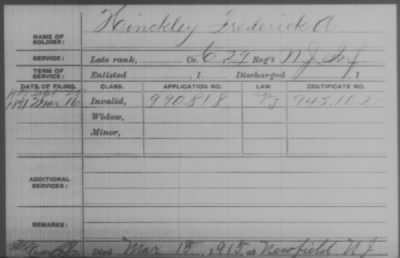 Hinckley Frederick A.
NAME OF SOLDIER:
SERVICE: Late rank, Co. C 29 Reg't N J Inf
TERM OF SERVICE: Enlisted , 1 Discharged , 1
DATE OF FILING. CLASS. APPLICATION NO. LAW. CERTIFICATE NO.
1891 Mar 16 Invalid, 990.818
Widow,
Minor,
ADDITIONAL SERVICES:
REMARKS:
Died Mar 15, 1915, at Newfield N J